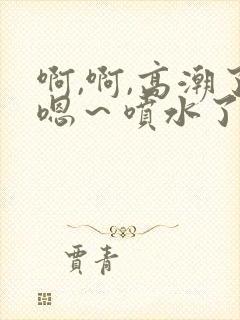 啊,啊,高潮了
嗯～喷水了
贾青